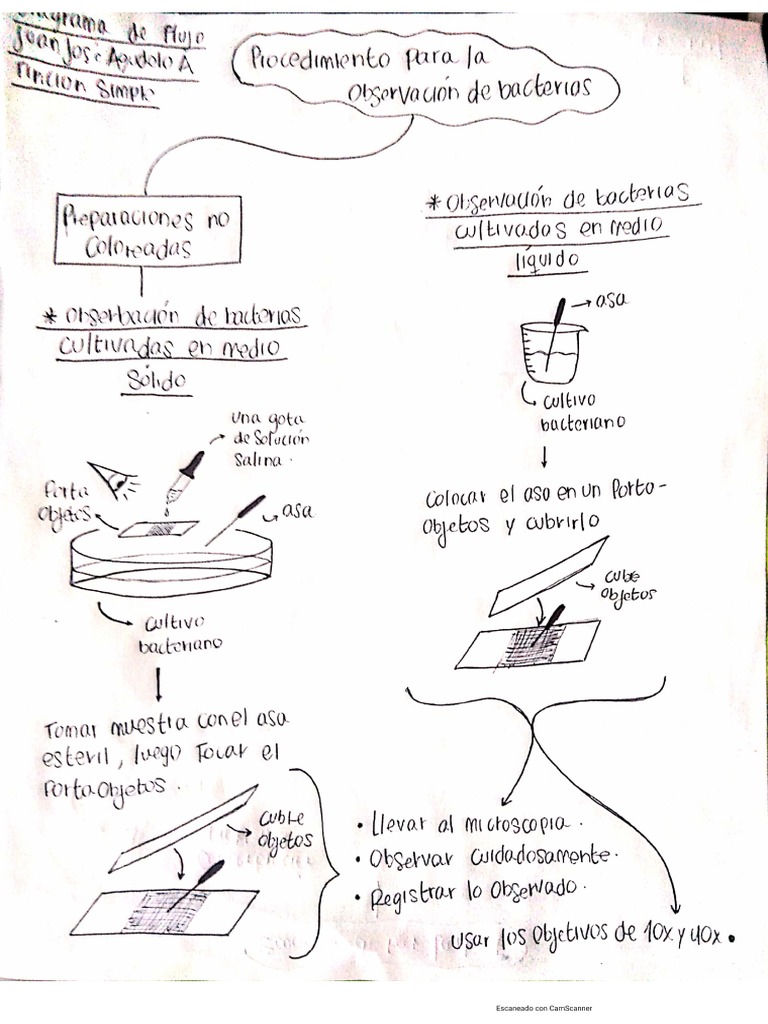 Diagrama de Flujo
Juan José Agudelo A
Tinción Simple
Procedimiento para la
Observación de bacterias
Preparaciones no
Coloreadas
* Obserbación de bacterias
cultivadas en medio
Sólido
una gota
de solución
salina.
Porta
Objetos
asa
cultivo
bacteriano
Tomar muestra con el asa
esteril, luego Tocar el
PortaObjetos.
Cubre
objetos
* Observación de bacterias
cultivadas en medio
líquido
asa
cultivo
bacteriano
Colocar el asa en un Porta-
Objetos y cubrirlo
Cube
Objetos
• Llevar al microscopia.
• Observar cuidadosamente.
• Registrar lo Observado.
usar los Objetivos de 10x y 40x.
Escaneado con CamScanner